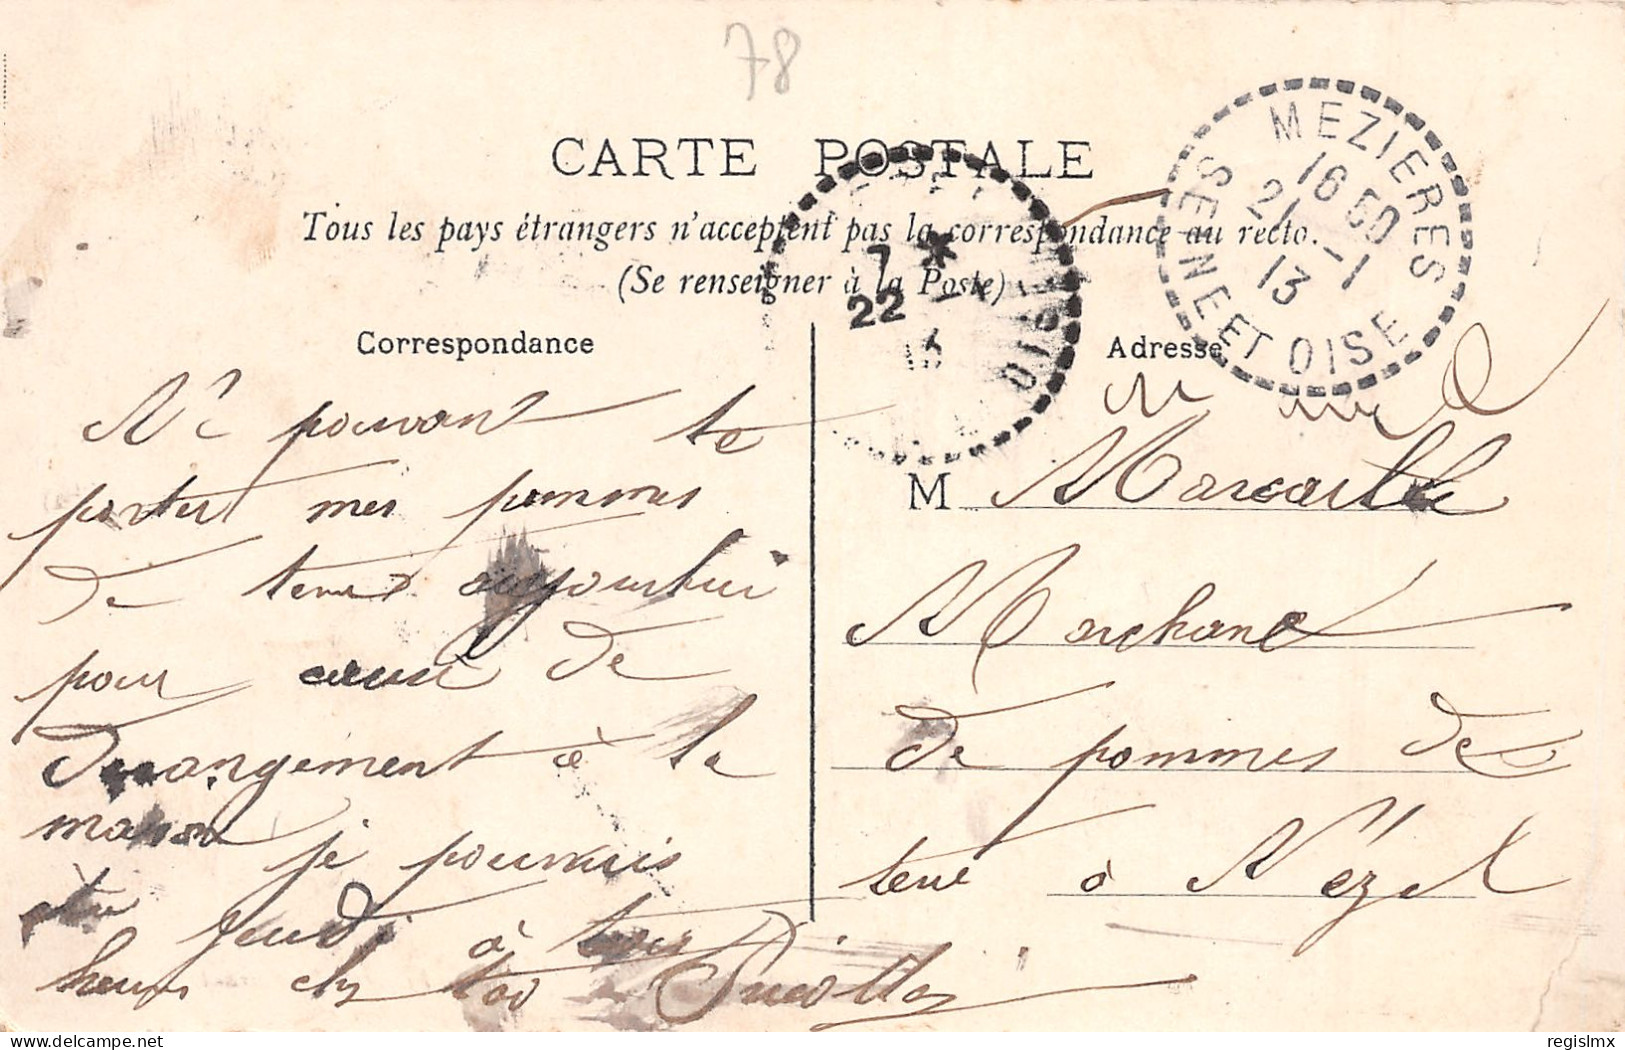 78
CARTE POSTALE
Tous les pays étrangers n'acceptent pas la correspondance au recto.
(Se renseigner à la Poste)
MEZIERES
16 50
21 -1
13
SEINE ET OISE
7 *
22
13
OISE
Correspondance
Ne pouvant te
porter mes pommes
de terres aujourhui
pour cause de
derangement à la
maison je pourrais
jeudi à trois
heures chez toi
Adresse
M
Marchand
de pommes de
terre à Nézel
www.delcampe.net
regislmx